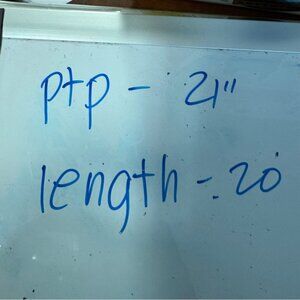 ptp - 21"
length - 20